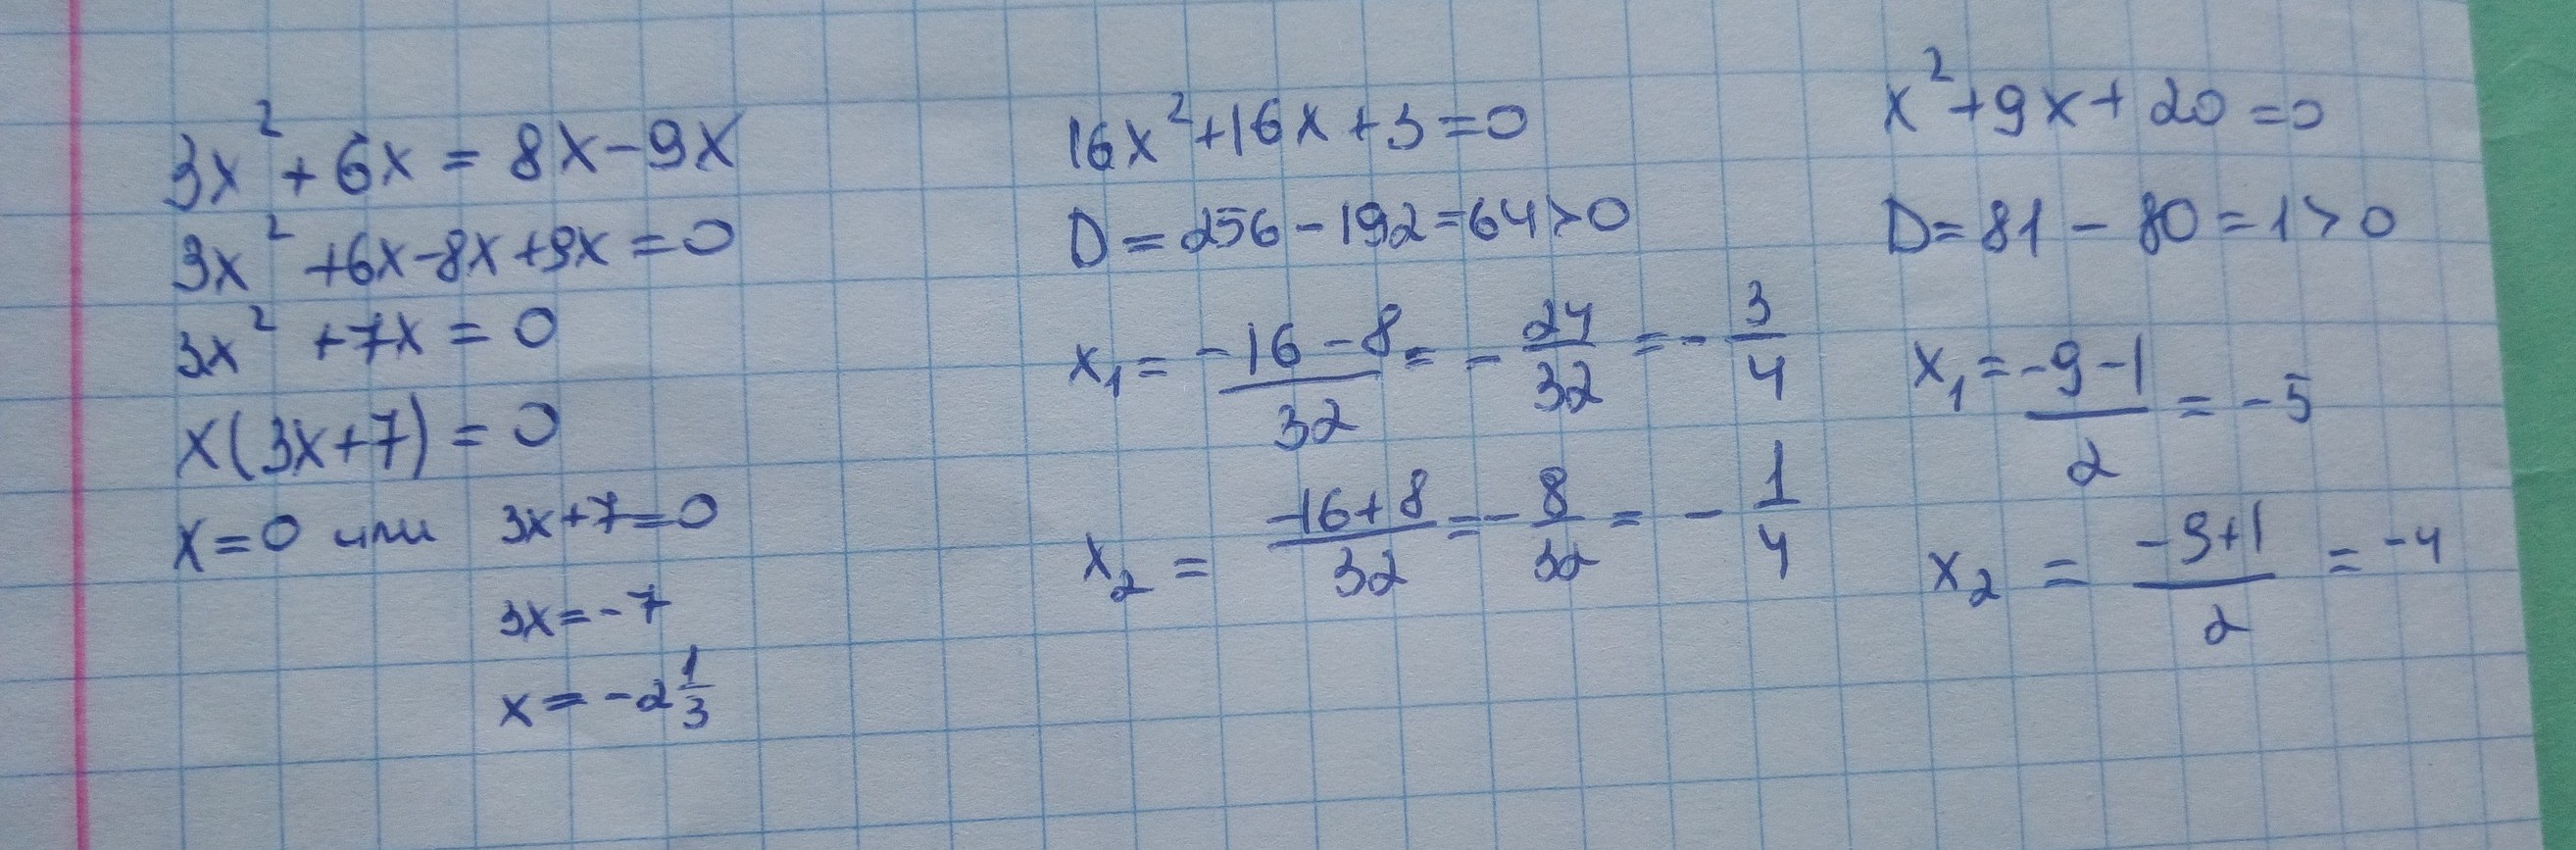 3x² + 6x = 8x - 9x
3x² + 6x - 8x + 9x = 0
3x² + 7x = 0
x(3x+7) = 0
x = 0 или 3x+7=0
3x = -7
x = -2 1/3
16x² + 16x + 3 = 0
D = 256 - 192 = 64 > 0
x₁ = (-16 - 8)/32 = - 24/32 = - 3/4
x₂ = (-16 + 8)/32 = - 8/32 = - 1/4
x² + 9x + 20 = 0
D = 81 - 80 = 1 > 0
x₁ = (-9 - 1)/2 = -5
x₂ = (-9 + 1)/2 = -4